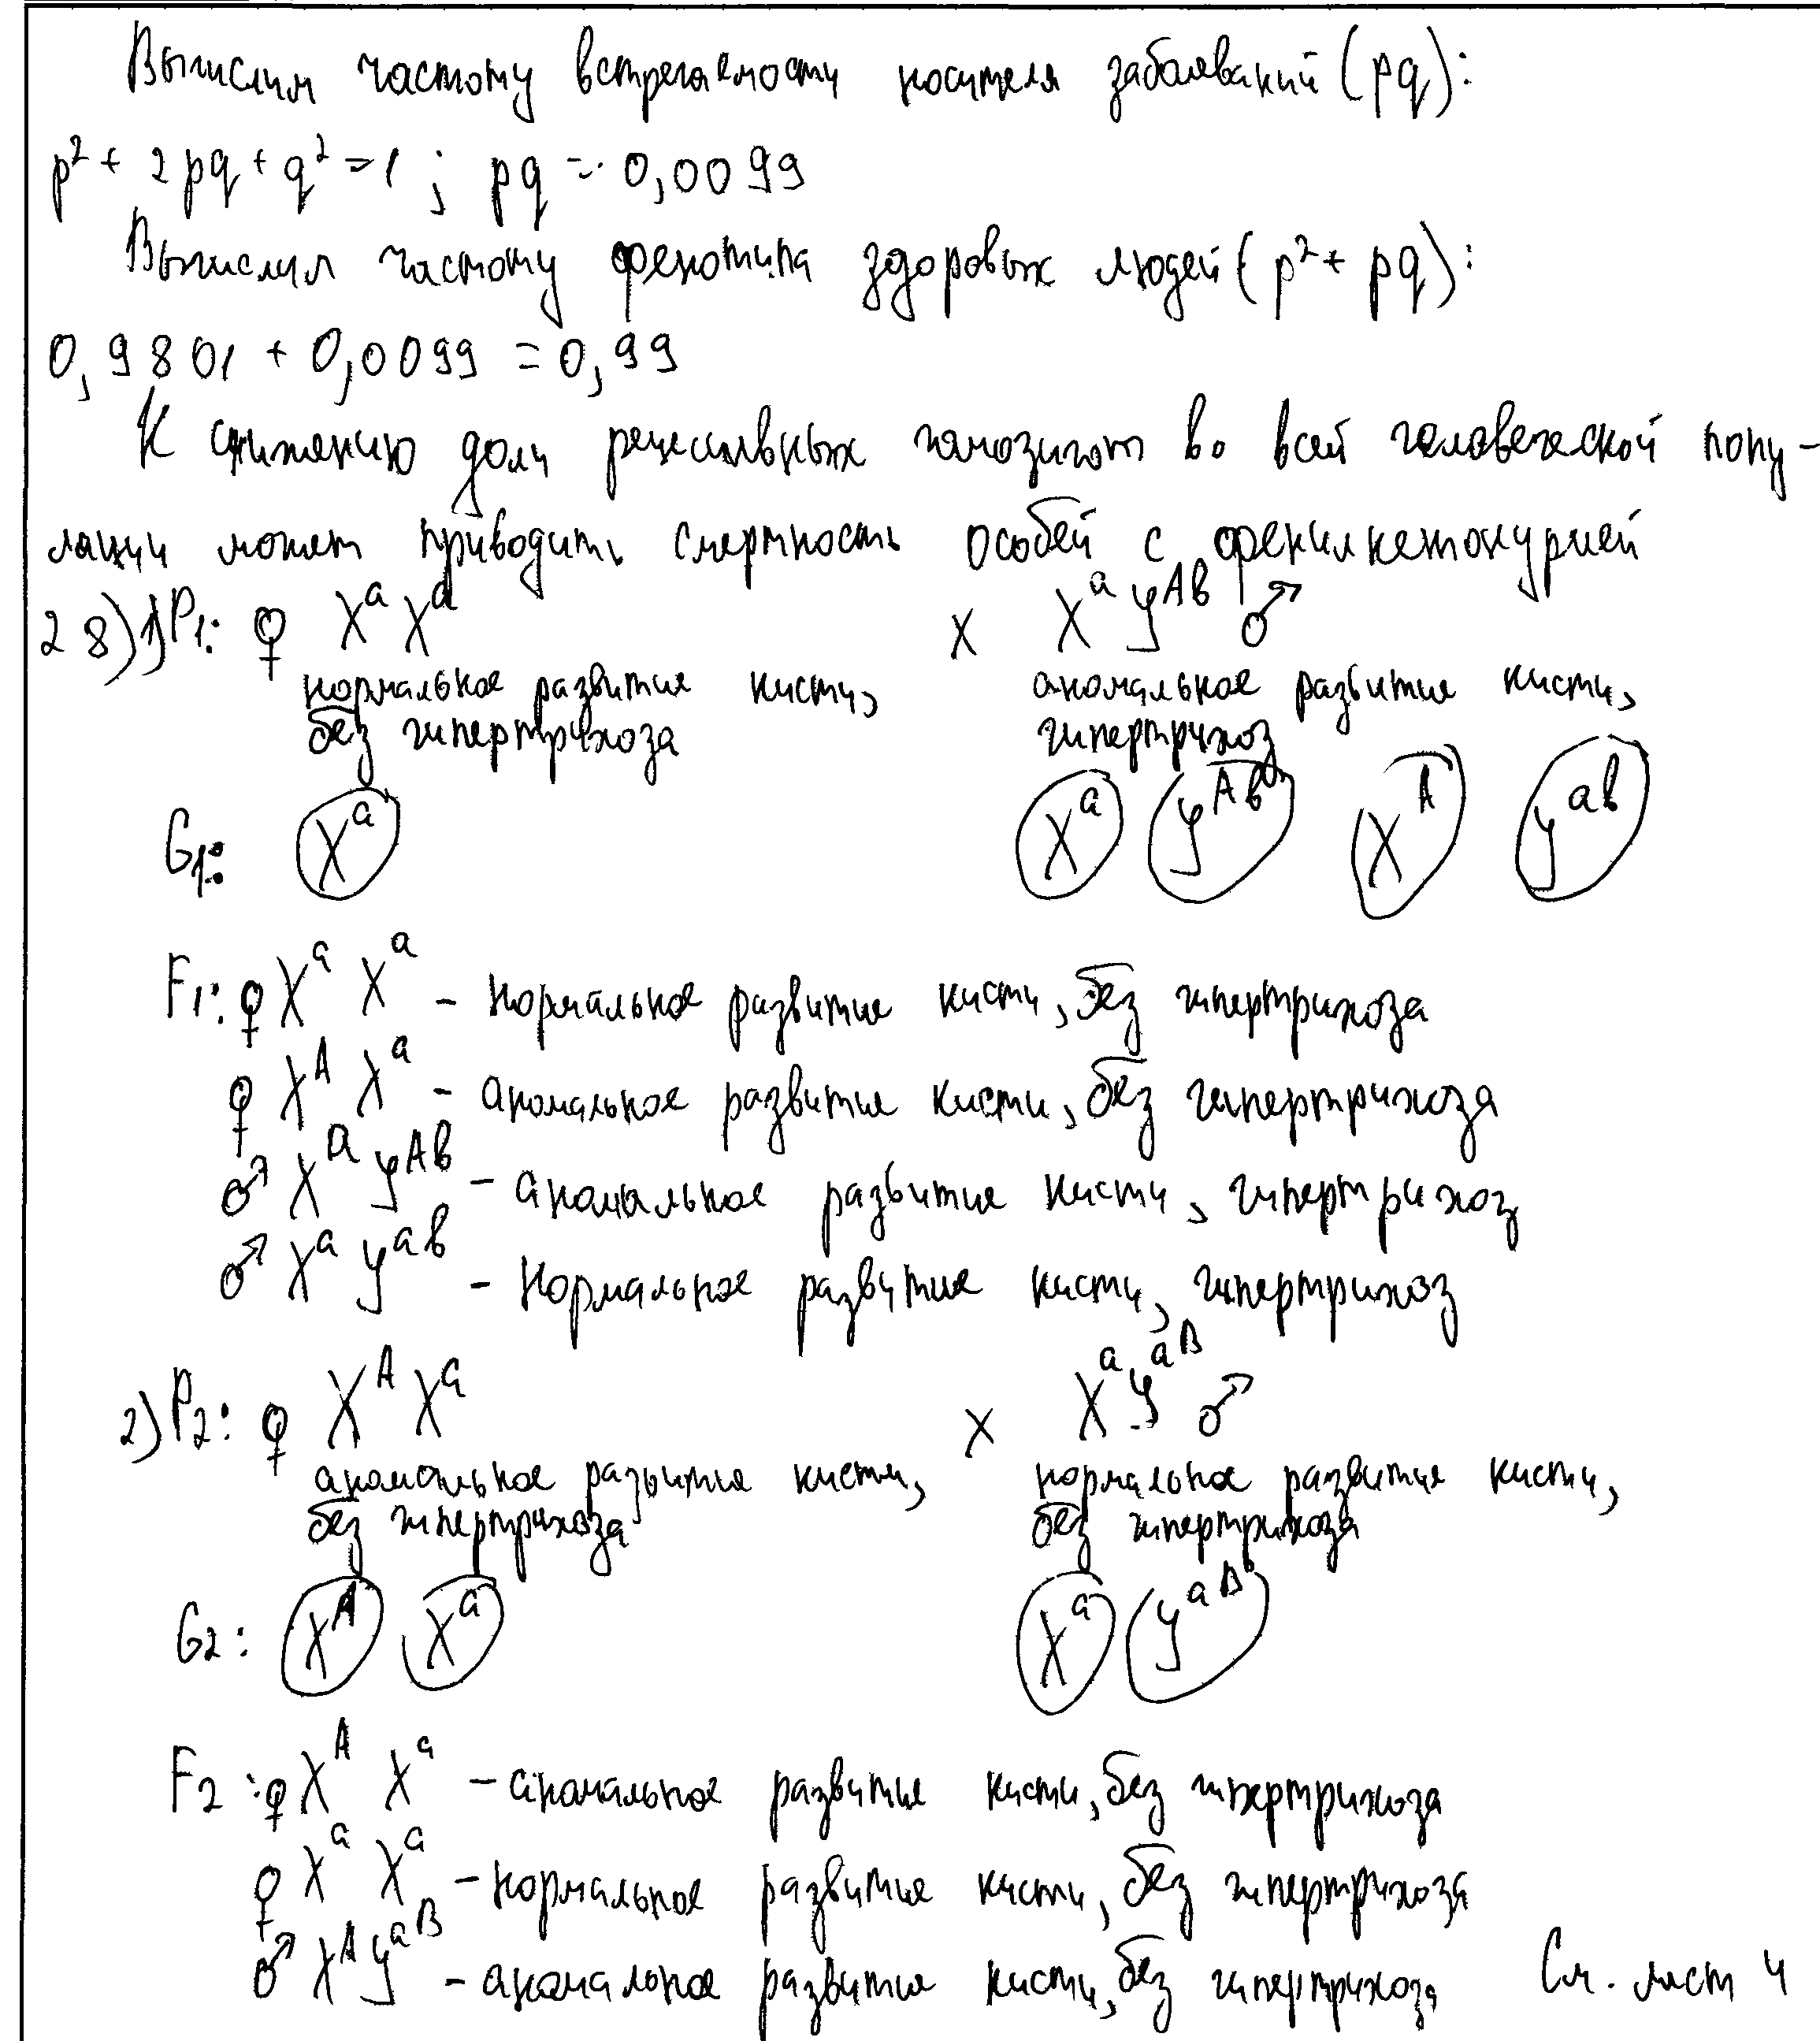 Вычислим частоту встречаемости носителя заболеваний (pq):
p² + 2pq + q² = 1 ; pq = 0,0099
Вычислим частоту фенотипа здоровых людей (p² + pq):
0,9801 + 0,0099 = 0,99
К снижению доли рецессивных гомозигот во всей человеческой попу-
ляции может приводить смертность особей с фенилкетонурией
28) 1) P₁: ♀ XᵃXᵃ x XᵃYᴬᵇ ♂
нормальное развитие кисти, аномальное развитие кисти,
без гипертрихоза гипертрихоз
G₁: Xᵃ Xᵃ Yᴬᵇ Xᴬ Yᵃᵇ
F₁: ♀ Xᵃ Xᵃ - нормальное развитие кисти, без гипертрихоза
♀ Xᴬ Xᵃ - аномальное развитие кисти, без гипертрихоза
♂ Xᵃ Yᴬᵇ - аномальное развитие кисти, гипертрихоз
♂ Xᵃ Yᵃᵇ - Нормальное развитие кисти, гипертрихоз
2) P₂: ♀ XᴬXᵃ x XᵃYᵃᴮ ♂
аномальное развитие кисти, нормальное развитие кисти,
без гипертрихоза без гипертрихоза
G₂: Xᴬ Xᵃ Xᵃ Yᵃᴮ
F₂: ♀ Xᴬ Xᵃ - аномальное развитие кисти, без гипертрихоза
♀ Xᵃ Xᵃ - нормальное развитие кисти, без гипертрихоза
♂ XᴬYᵃᴮ - аномальное развитие кисти, без гипертрихоза См. лист 4